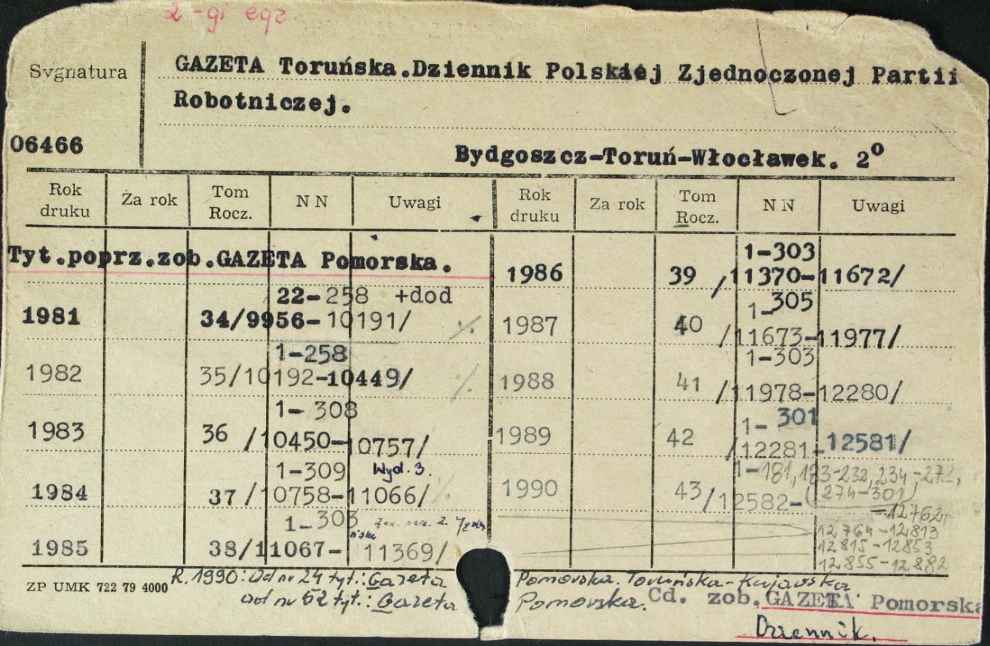 2-gi egz
Sygnatura
GAZETA Toruńska.Dziennik Polskiej Zjednoczonej Partii
Robotniczej.
06466
Bydgoszcz-Toruń-Włocławek. 2°
Rok druku Za rok Tom Rocz. NN Uwagi Rok druku Za rok Tom Rocz. NN Uwagi
Tyt.poprz.zob.GAZETA Pomorska.
22-258 +dod
1981 34/9956-10191/ %
1-258
1982 35/10192-10449/ %
1- 308
1983 36 /10450-10757/
1-309 Wyd. 3.
1984 37/10758-11066/ %
1-303
1985 38/11067- 11369/
1-303
1986 39 /11370-11672/
1-305
1987 40 /11673-11977/
1-303
1988 41 /11978-12280/
1- 301
1989 42 /12281-12581/
1-181, 183-232, 234-272,
(274-301)
1990 43/12582-
-12762,
12764-12813
12815-12853
12855-12882
ZP UMK 722 79 4000
R. 1990: Od nr 24 tyt.: Gazeta Pomorska. Toruńska-Kujawska
od nr 52 tyt.: Gazeta Pomorska.
Cd. zob.GAZETA Pomorska
Dziennik.